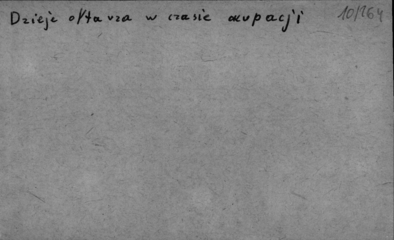 Dzieje ołtarza w czasie okupacji
10/164